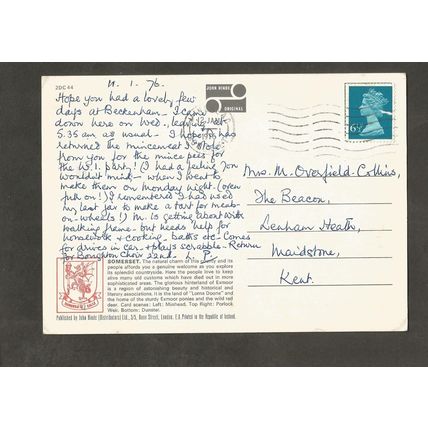 2DC44
11. 1. 76.
Hope you had a lovely few
days at Beckenham - I came
down here on Wed. leaving at
5.35 am as usual - I hope has
returned the mincemeat I stole
from you for the mince pies for
the W.I. party! (I had a feeling you
wouldnt mind - when I went to
make them on monday night (oven
full on!) I remembered I had used
my last jar to make a tart for meals
on-wheels!) M. is getting about with
walking frame - but needs help for
housework + cooking, baths etc - Comes
for drives in car + plays scrabble - Return
for Boughton Choir 22nd - L. P.
SOMERSET. The natural charm of the county and its
people affords you a genuine welcome as you explore
its splendid countryside. Here the people love to keep
alive many old customs which have died out in more
sophisticated areas. The glorious hinterland of Exmoor
is a region of astonishing beauty and historical and
literary associations. It is the land of "Lorna Doone" and
the home of the sturdy Exmoor ponies and the wild red
deer. Card scenes: Left: Minehead. Top Right: Porlock
Weir. Bottom: Dunster.
Published by John Hinde (Distributors) Ltd., London. Printed in the Republic of Ireland.
JOHN HINDE
ORIGINAL
6½P
Mrs. M. Overfield-Collins,
The Beacon,
Lenham Heath,
Maidstone,
Kent.